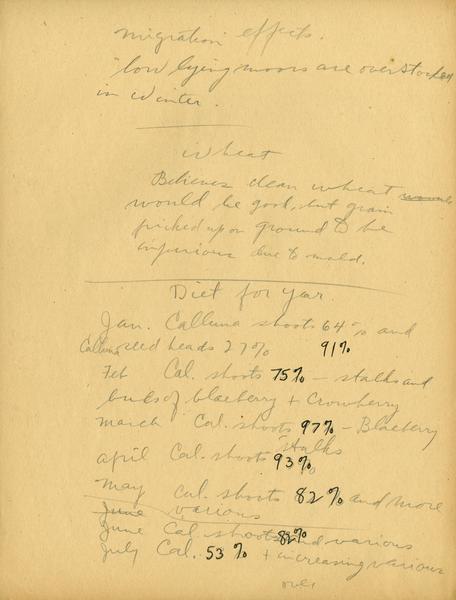 migration effects.
"low lying moors are overstocked
in winter.
wheat
Believes clean wheat
would be good, but grain
picked up on ground to be
injurious due to mold.
Diet for year.
Jan. Calluna shoots 64% and
Calluna seed heads 27% 91%
Feb Cal. shoots 75% – stalks and
buds of blaeberry + Crowberry
March Cal. shoots 97% – Blaeberry
stalks
April Cal. shoots 93%
May Cal. shoots 82% and more
June various
June Cal. shoots 82% and various
July Cal. 53% + increasing various
over